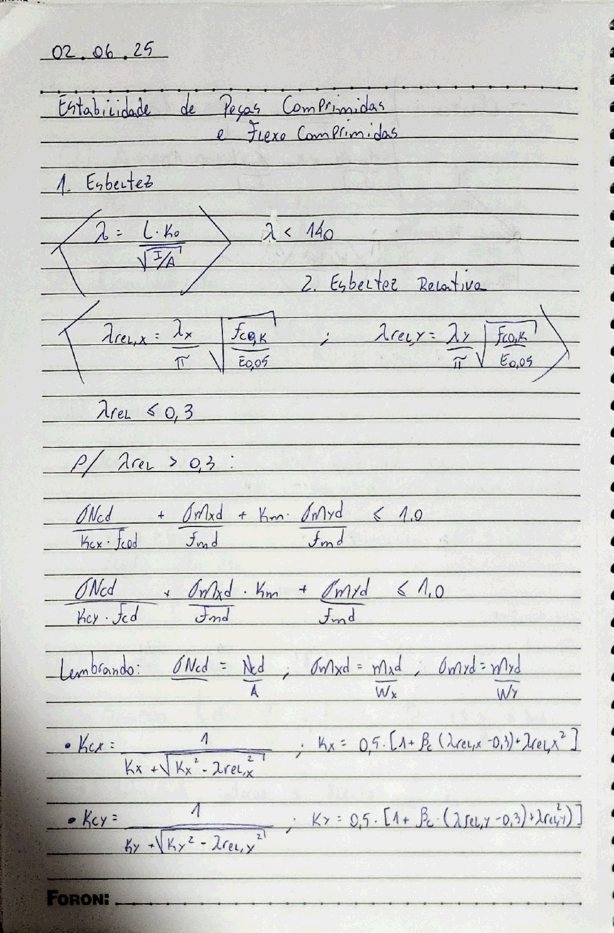 02.06.25
Estabilidade de Peças Comprimidas
e Flexo Comprimidas
1. Esbeltez
λ = L·K₀ / √(I/A) λ < 140
2. Esbeltez Relativa
λrel,x = λx/π √(fc0,k/E0,05) ; λrel,y = λy/π √(fc0,k/E0,05)
λrel ≤ 0,3
P/ λrel > 0,3 :
σNcd/(Kcx · fc0d) + σMxd/fmd + Km · σMyd/fmd ≤ 1,0
σNcd/(Kcy · fcd) + σMxd/fmd · Km + σMyd/fmd ≤ 1,0
Lembrando: σNcd = Ncd/A ; σmxd = mxd/Wx ; σmyd = myd/Wy
• Kcx = 1/(Kx + √(Kx² - λrel,x²)) ; Kx = 0,5 · [1 + βc (λrel,x - 0,3) + λrel,x²]
• Kcy = 1/(Ky + √(Ky² - λrel,y²)) ; Ky = 0,5 · [1 + βc · (λrel,y - 0,3) + λrel,y²)]
FORONI